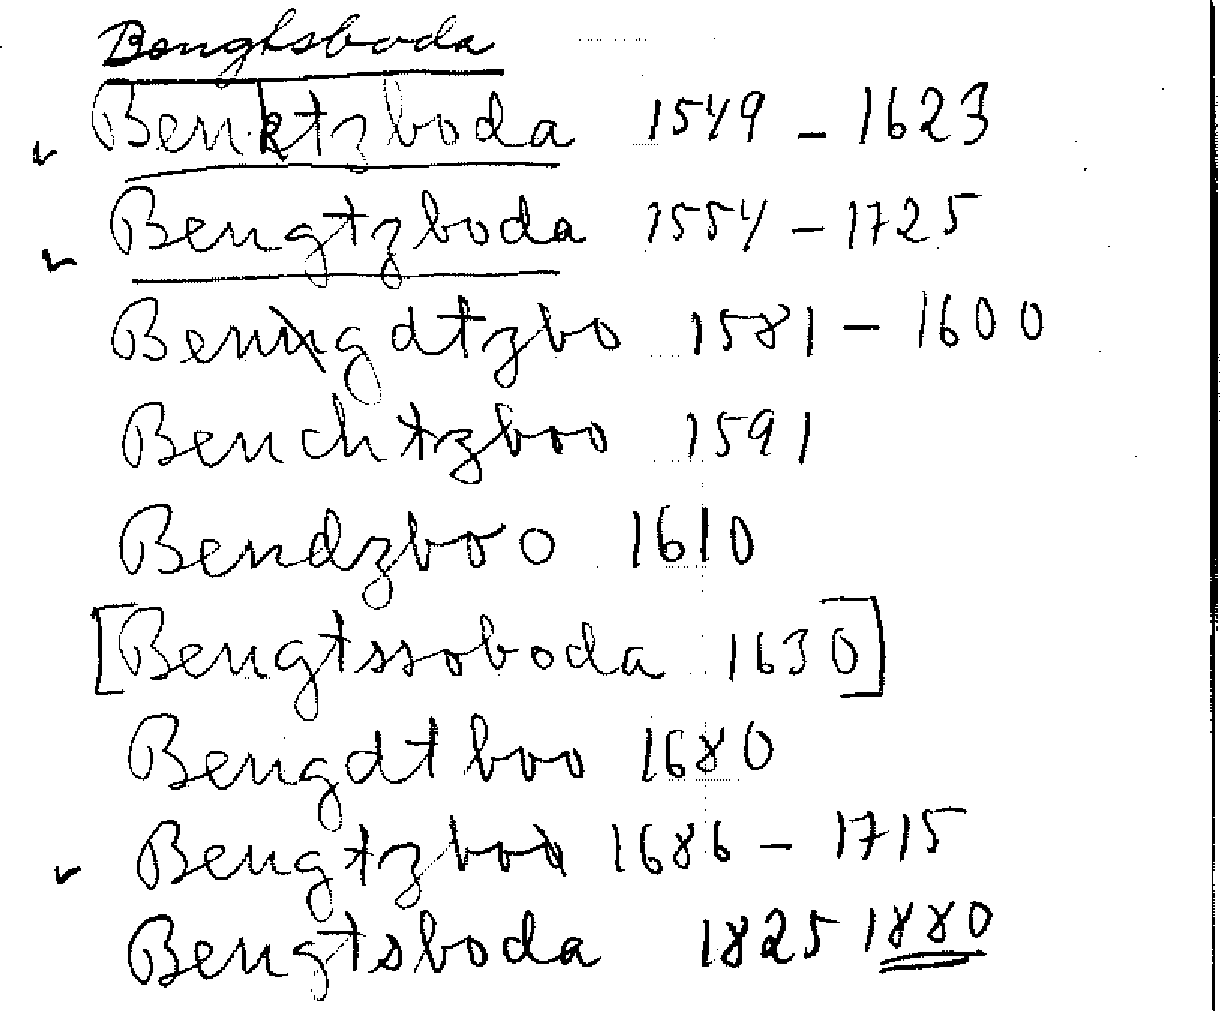 Bengtsboda
Benktzboda 1549 - 1623
Bengtzboda 1554 - 1725
Bengdtzbo 1581 - 1600
Benchtzboo 1591
Bendzboo 1610
[Bengtssoboda 1630]
Bengdtboo 1680
Bengtzboo 1686 - 1715
Bengtsboda 1825 1880